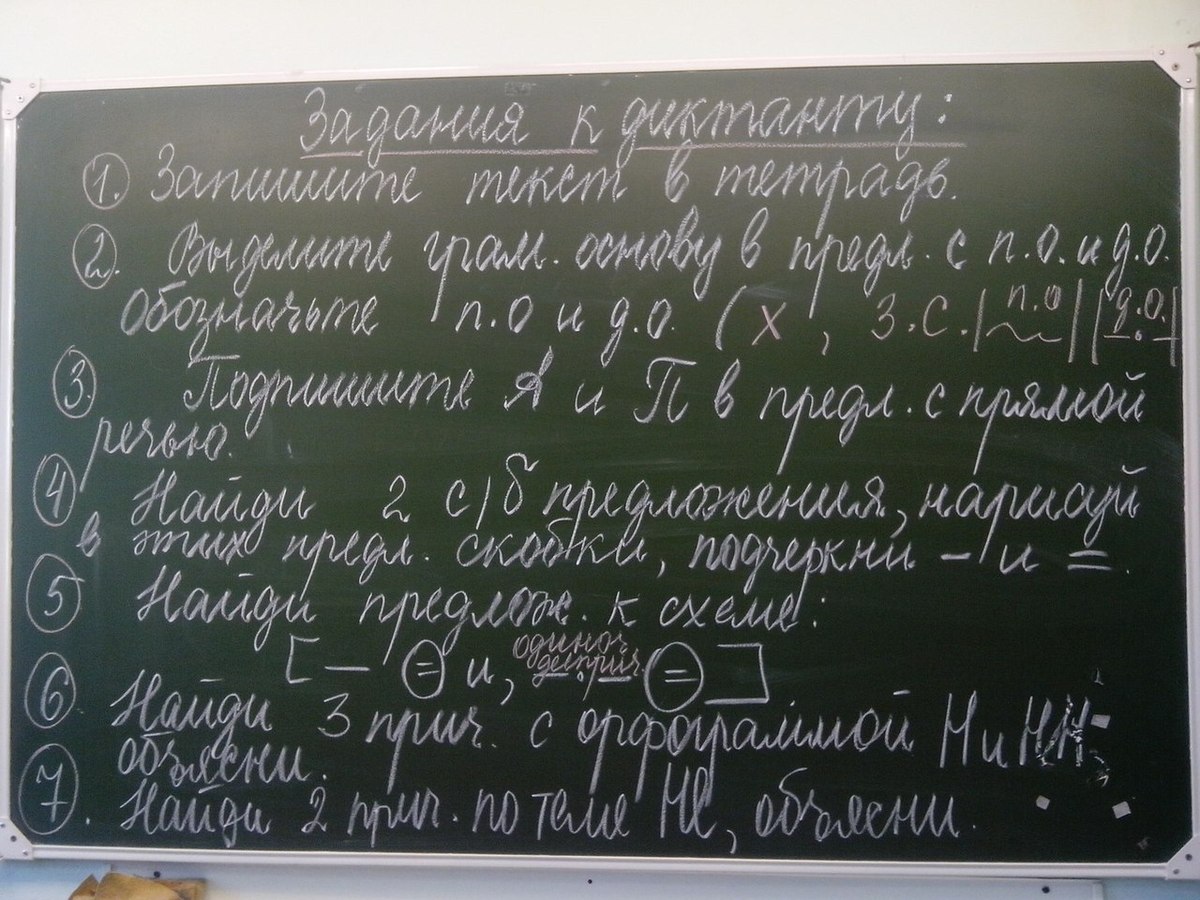 Задания к диктанту:
1. Запишите текст в тетрадь.
2. Выделите грам. основу в предл. с п.о. и д.о.
Обозначьте п.о и д.о. (х, з.с. | п.о | | д.о. |
3. Подпишите А и П в предл. с прямой
речью.
4 Найди 2 с/б предложения, нарисуй
в этих предл. скобки, подчеркни – и =.
5 Найди предлож. к схеме:
[ – = и, одиноч. дееприч. = ]
6 Найди 3 прич. с орфограммой Н и НН
объясни.
7. Найди 2 прич. по теме НЕ, объясни.